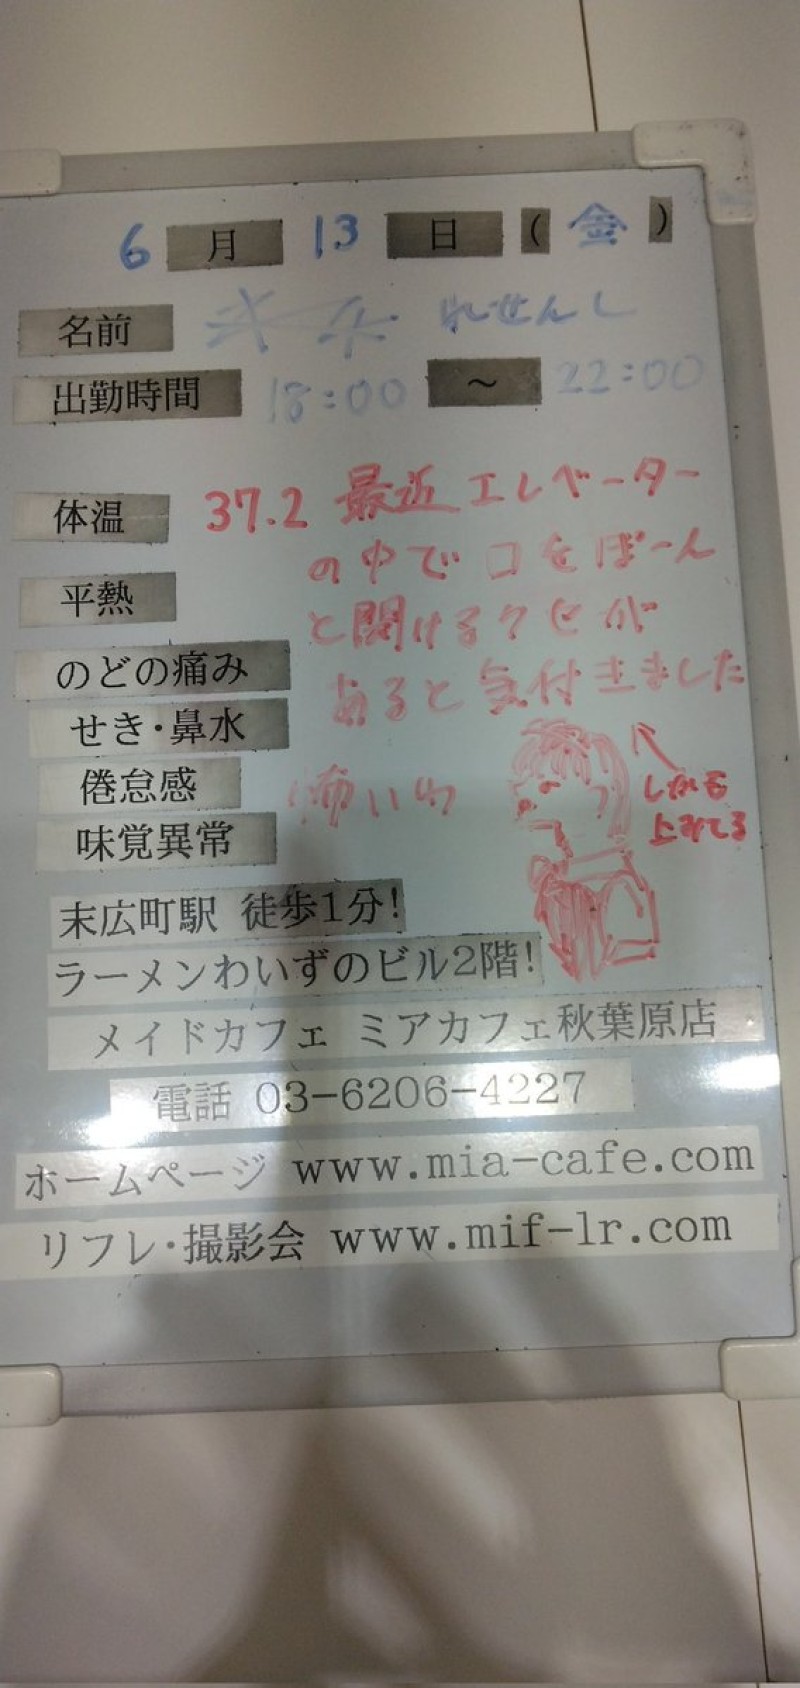 6月13日(金)
名前 れせんし
出勤時間 18:00 ～ 22:00
体温 37.2 最近エレベーター
の中で口をぽーん
平熱
と開けるクセが
のどの痛み
あると気付きました
せき・鼻水
倦怠感 怖いわ
しかも
上みてる
味覚異常
末広町駅 徒歩1分!
ラーメンわいずのビル2階!
メイドカフェ ミアカフェ秋葉原店
電話 03-6206-4227
ホームページ www.mia-cafe.com
リフレ・撮影会 www.mif-lr.com